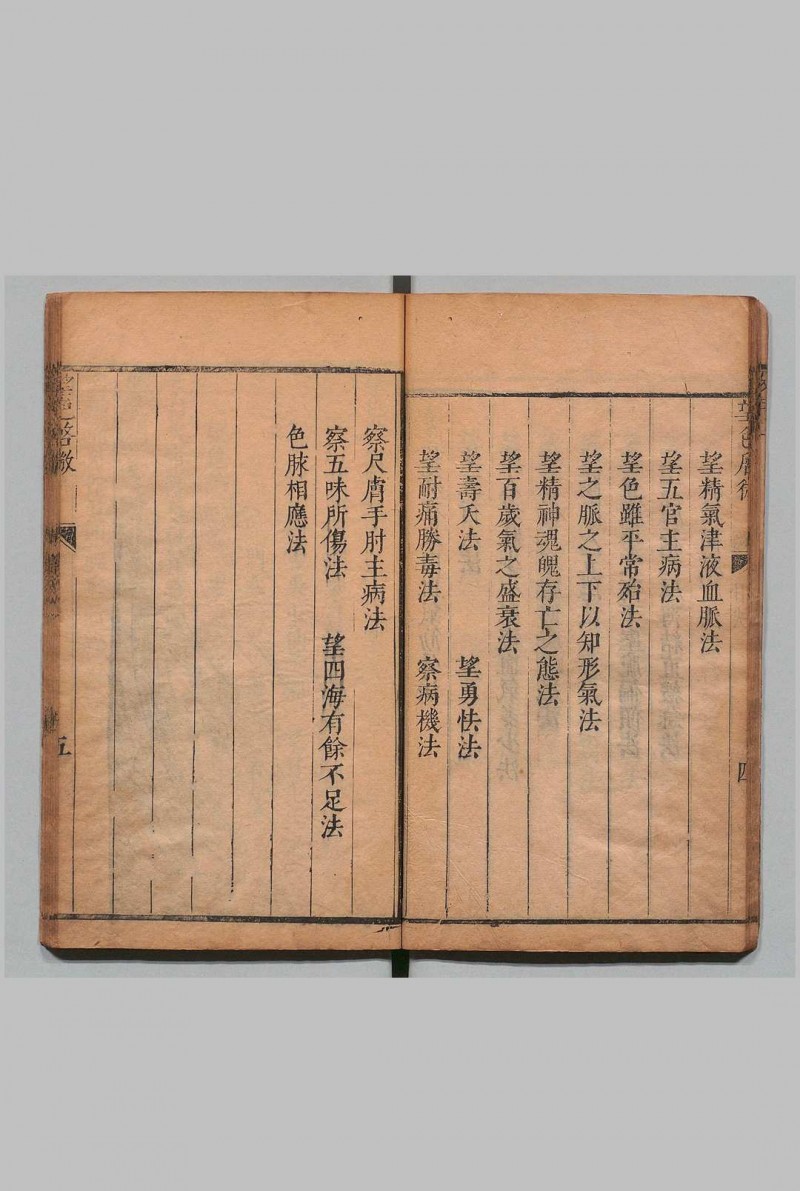 望精氣津液血脈法
望五官主病法
望色雖平常殆法
望之脈之上下以知形氣法
望精神魂魄存亡之態法
望百歲氣之盛衰法
望壽夭法 望勇怯法
望耐痛勝毒法 察病機法
四
察尺膚手肘主病法
察五味所傷法 望四海有餘不足法
色脉相應法
五